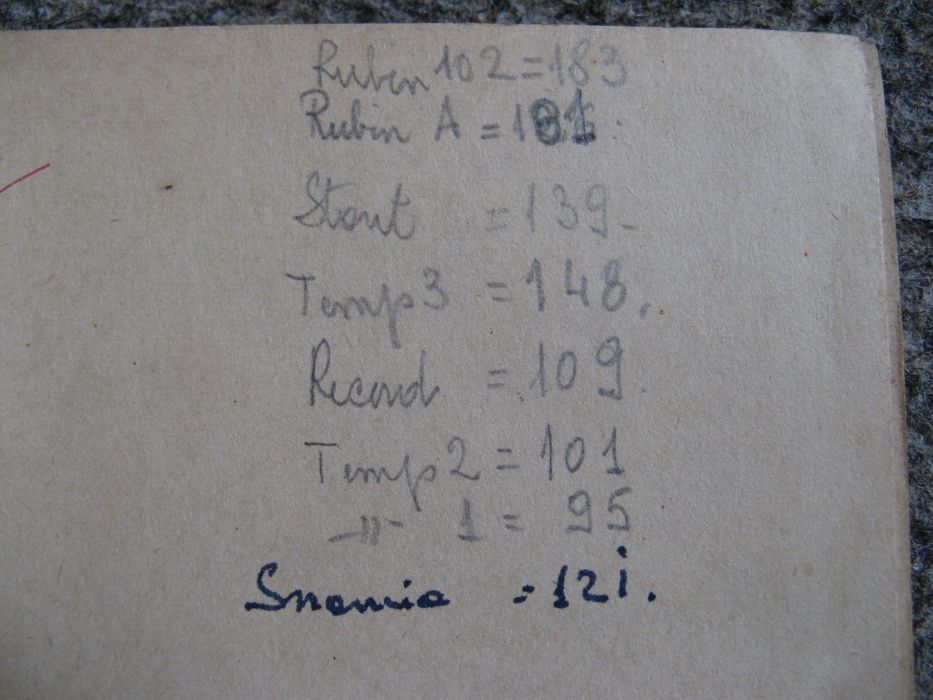 Rubin 102 = 183
Rubin A = 181
Start = 139.
Temp 3 = 148.
Record = 109.
Temp 2 = 101
-"- 1 = 95
= 121.